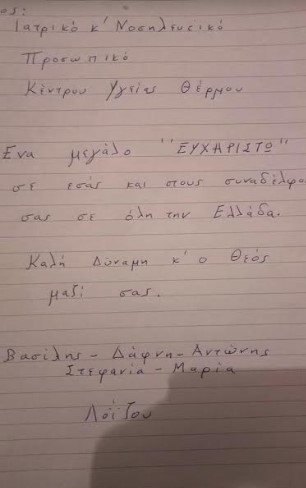 Ιατρικό κ' Νοσηλευτικό
Προσωπικό
Κέντρου Υγείας Θέρμου
Ένα μεγάλο "ΕΥΧΑΡΙΣΤΩ"
σε εσάς και στους συναδέλφο
σας σε όλη την Ελλάδα.
Καλή Δύναμη κ' ο Θεός
μαζί σας.
Βασίλης - Δάφνη - Αντώνης
Στεφανία - Μαρία
Λοΐζου